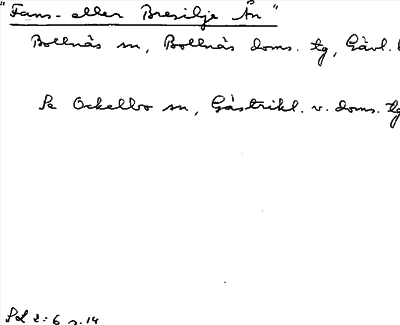 "Fans- eller Bresilje Ån"
Bollnäs sn, Bollnäs doms. tg, Gävl.
Se Ockelbo sn, Gästrikl. v. doms. tg
Sd 2:6 s. 14